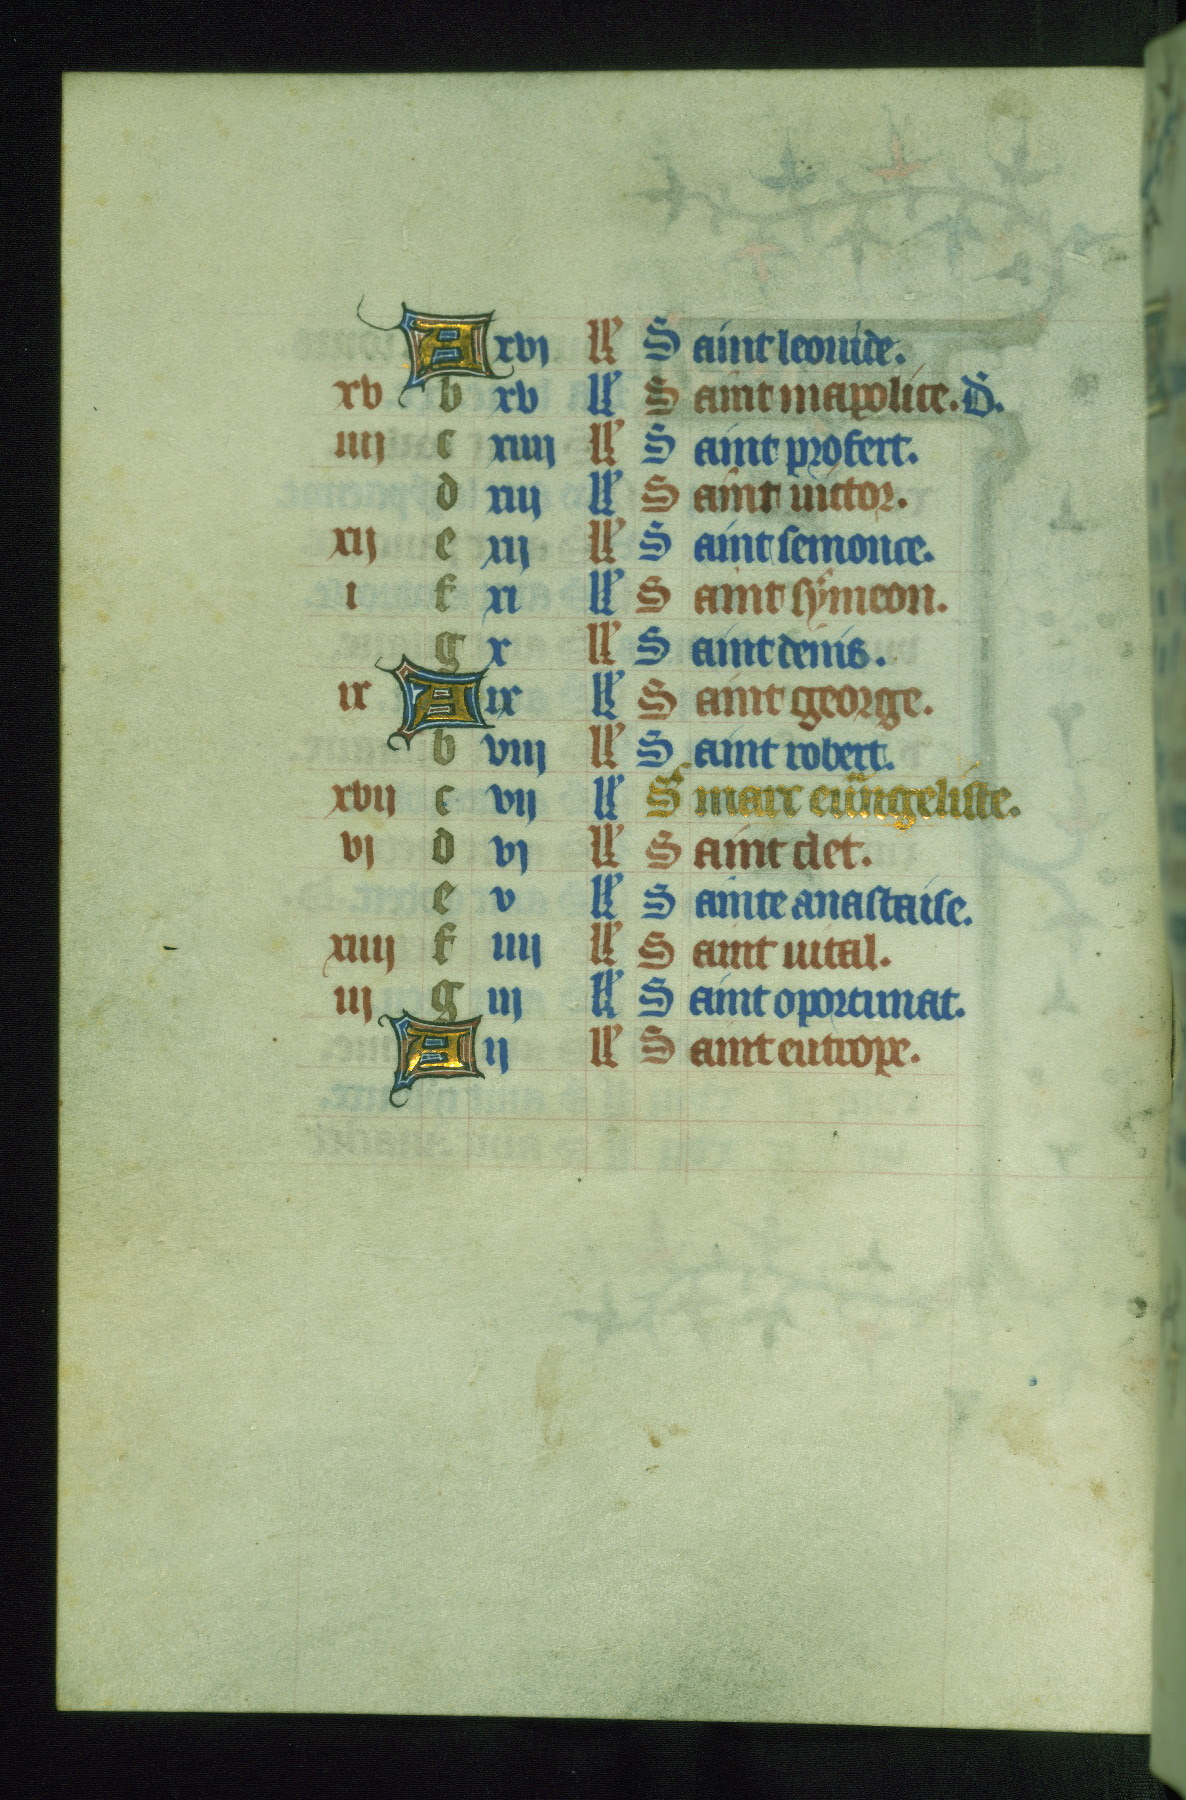 A xvj kl Saint leonide.
xv b xv kl Saint mapolite. D.
iiij c xiiij kl Saint profert.
d xiij kl Saint uictor.
xij e xij kl Saint semonce.
i f xi kl Saint symeon.
g x kl Saint denis.
ix A ix kl Saint george.
b viij kl Saint robert.
xvij c vij kl S marc euungeliste.
vj d vj kl Saint clet.
e v kl Sainte anastaise.
xiiij f iiij kl Saint uital.
iij g iij kl Saint oportunat.
A ij kl Saint eutrope.